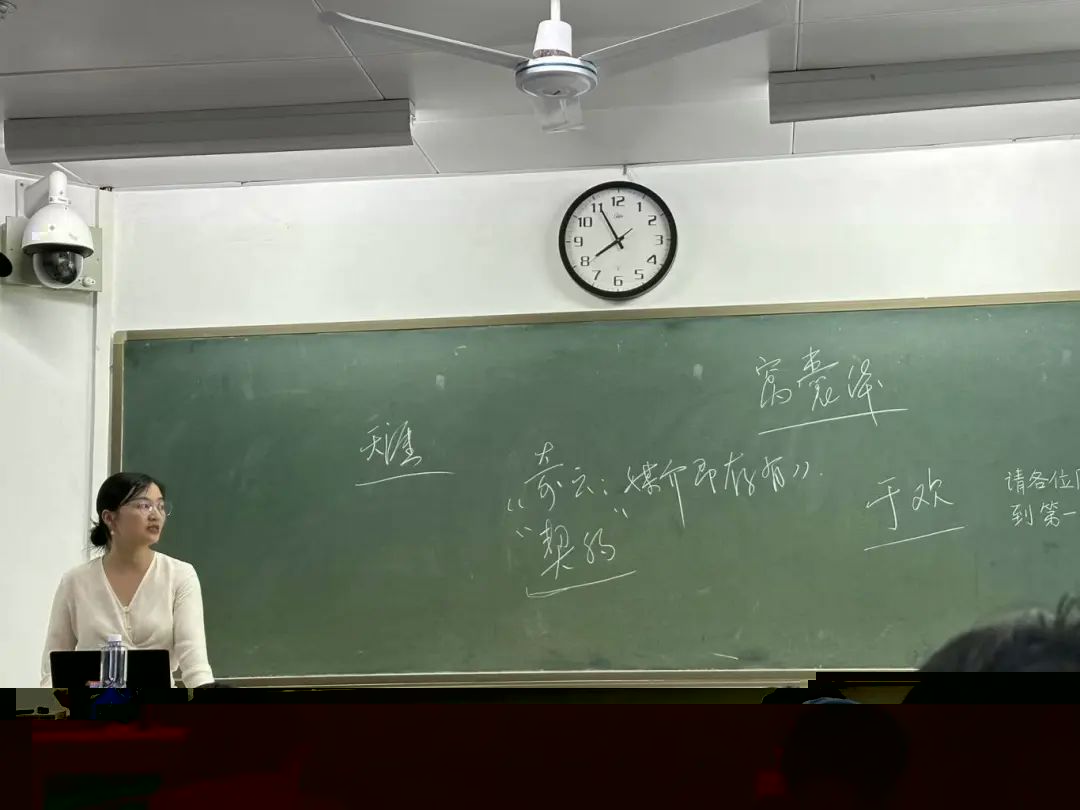 12
11 1
10 2
9 3
8 4
7 5
6
窝囊
天涯
《奇云:媒介即存有》
“契约”
于欢
请各位
到第一